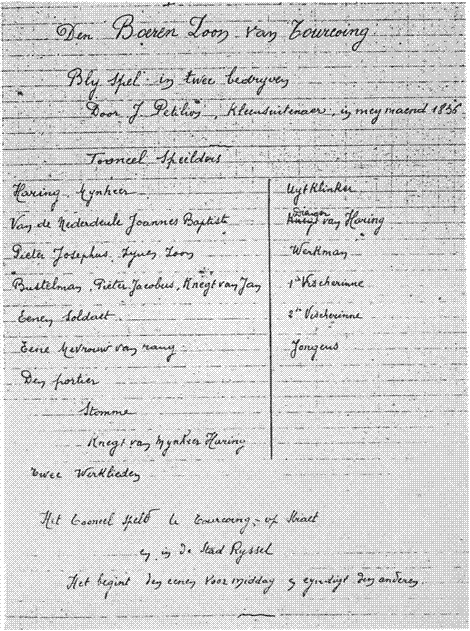 Den Boeren Zoon van Tourcoing
Bly spel in twee bedryven
Door J. Petilion, Kleensuitenaer, in mey maend 1856
Tooneel Speelders
Haring, Mynheer
Van de Nederdeule Joannes Baptist
Pieter Josephus, Zynen Zoon
Bustelman, Pieter Jacobus, Knegt van Jan
Eenen Soldaet
Eene Mevrouw van rang
Den portier
Stomme
Knegt van Mynheer Haring
Twee Werklieden
Uytklinker
Drager
van Haring
Werkman
1ste Visscherinne
2de Visscherinne
Jongens
Het tooneel speelt te Tourcoing, op Straet
en in de Stad Ryssel
Het begint den eenen voor middag en eyndigt den anderen.